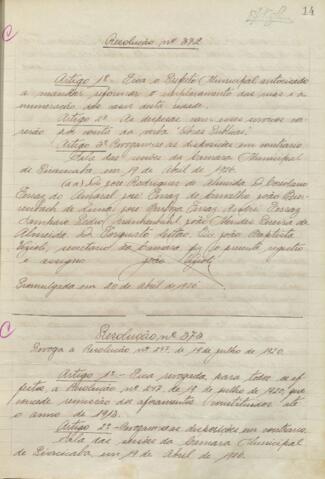 14
Resolução nº 372
Artigo 1º - Fica o Prefeito Municipal autorizado
a mandar reformar o emplacamento das ruas e a
numeração das casas desta cidade.
Artigo 2º As despesas com esses serviços cor
rerão por conta da verba "Obras Publicas".
Artigo 3º Revogam-se as disposições em contrario.
Sala das sessões da Camara Municipal
de Piracicaba, em 19 de Abril de 1926.
(aa) D. José Rodrigues de Almeida, D. Coriolano
Ferraz do Amaral, José Ferraz de Carvalho, João
de Lima, José Ferraz, André Ferraz
Sampaio, Pedro, João Mendes Pereira de
Almeida, D. Augusto. Eu João Baptista
, secretario da Camara fiz o presente registro
e assigno. João
Promulgada em 20 de abril de 1926.
Resolução nº 373
Revoga a Resolução nº 247, de 19 de julho de 1920.
Artigo 1º - Fica revogada, para todos os ef
feitos, a Resolução nº 247, de 19 de julho de 1920, que
concede remissão dos aforamentos constituidos até
o anno de 1913.
Artigo 2º - Revogam-se as disposições em contrario.
Sala das sessões da Camara Municipal
de Piracicaba, em 19 de Abril de 1926.